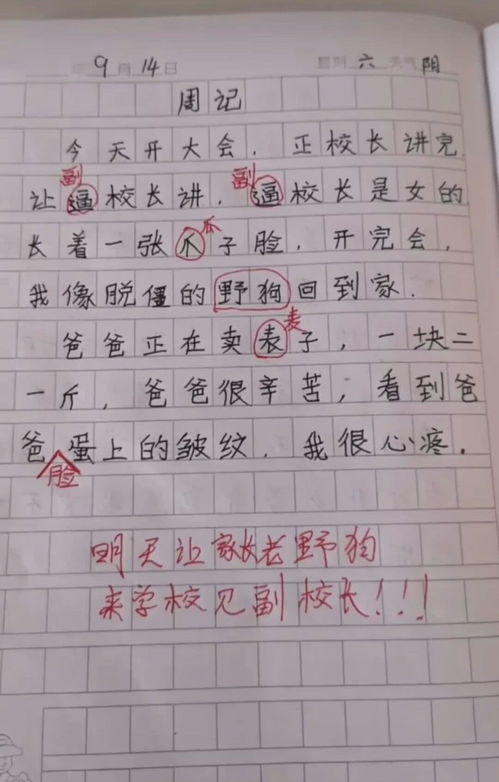 年9月14日 星期六 天气阴
周记
今天开大会,正校长讲完
副 副
让逼校长讲,逼校长是女的
瓜
长着一张爪子脸,开完会,
我像脱僵的野狗回到家.
麦
爸爸正在卖表子,一块二
一斤,爸爸很辛苦,看到爸
爸蛋上的皱纹.我很心疼.
脸
明天让家长老野狗
来学校见副校长!!!